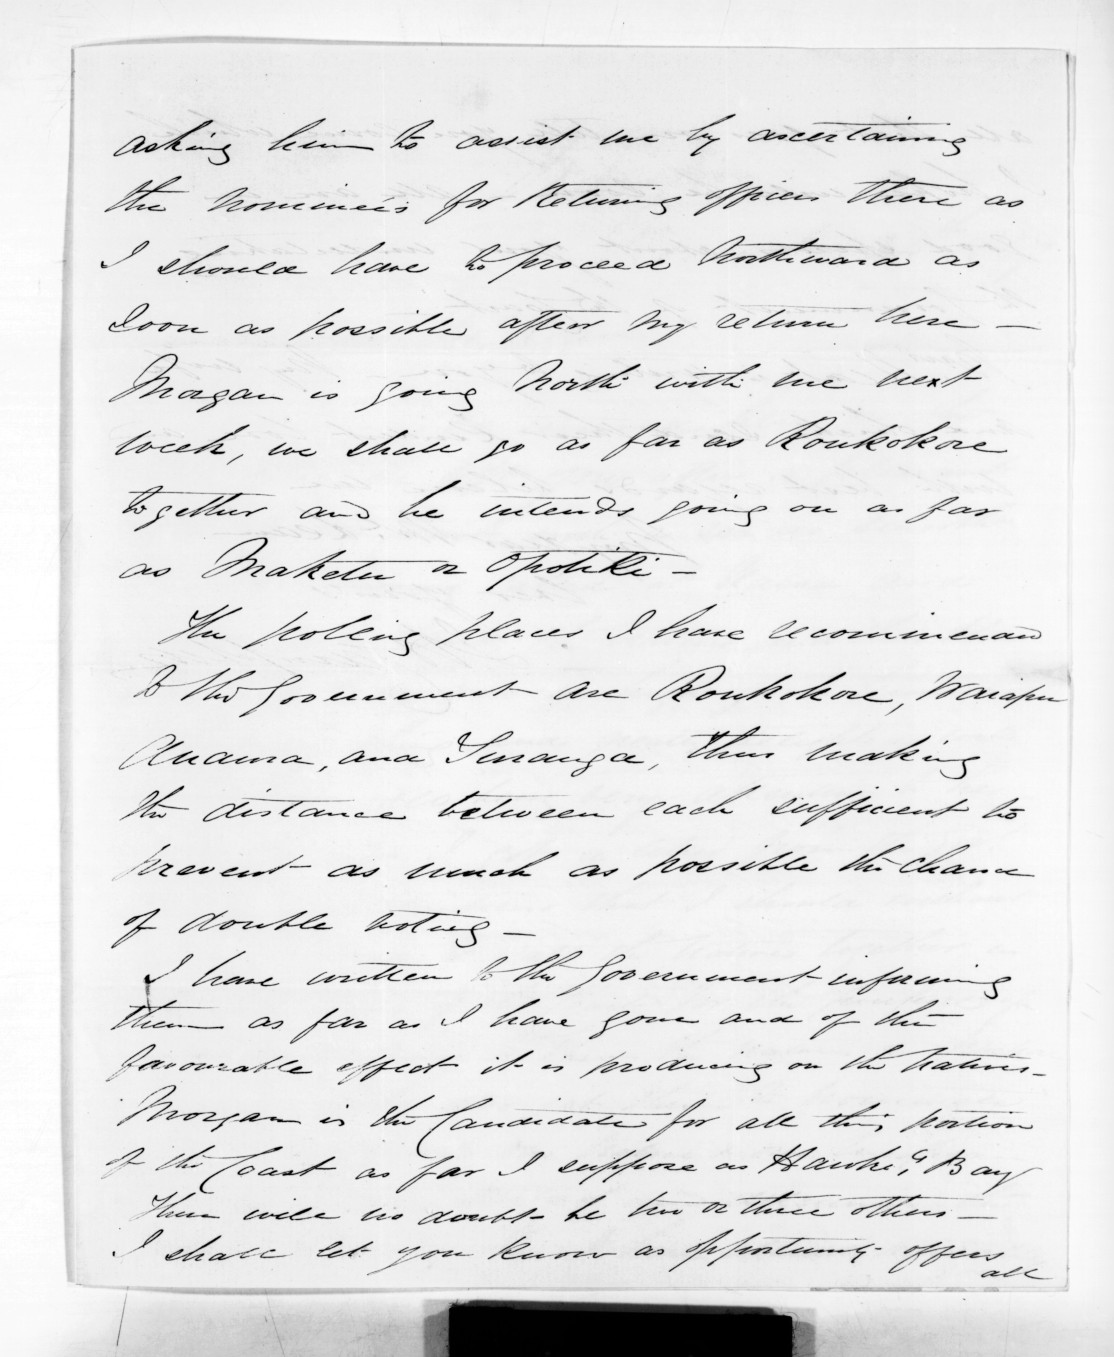 asking him to assist me by ascertaining
the nominees for Returning officers there as
I should have to proceed Northward as
soon as possible after my return here —
Morgan is going North with me next
week, we shall go as far as Roukokore
together and he intends going on as far
as Maketu or Opotiki —
The polling places I have recommended
to the Government are Roukokore, Waiapu
Auawa, and Turanga, thus making
the distance between each sufficient to
prevent as much as possible the chance
of double voting —
I have written to the Government informing
them as far as I have gone and of the
favourable effect it is producing on the natives —
Morgan is the Candidate for all this portion
of the Coast as far I suppose as Hawke's Bay
There will no doubt be two or three others —
I shall let you know as opportunity offers
all